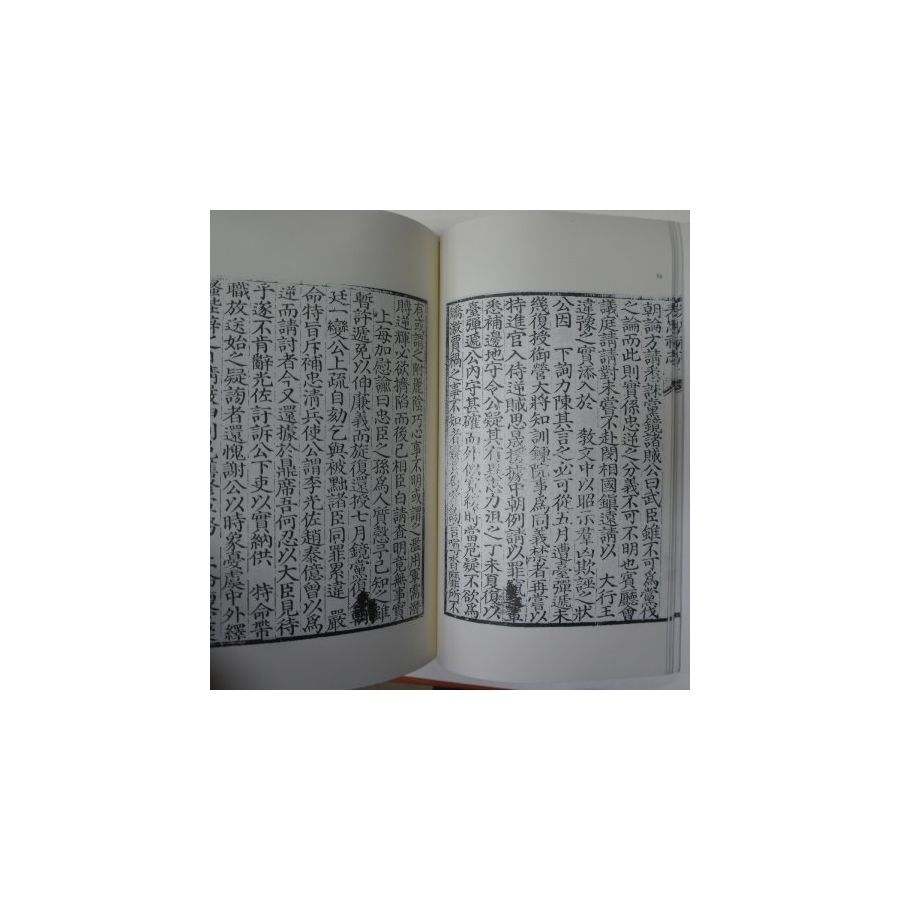 朝論方請釆訴黨鏡諸賊公曰武臣雖不可爲黨伐
之論而此則實係忠逆之分義不可不明也賓廳會
議庭請請對未嘗不赴閔相國鎭遠請以 大行王
違豫之實添入於 敎文中以昭示羣凶欺誣之狀
公因 下詢力陳其言之必可從五月遭臺彈遞未
幾復授御營大將知訓鍊院事爲同義禁者再嘗以
特進官入侍逆賊思晟援據中朝例請以罪
悉補邊地守令公疑其有 忠力沮之丁未夏復以
臺彈遞公內守其確而外似寬 時當危疑不欲爲
矯激賈禍之事不知者 不
有或謂之附麗陰巧心事不明或謂之濫用軍需潛
賂逆輝必欲擠陷而後已相臣白請查明竟無事實
上每加慰諭曰忠臣之孫爲人質慤予已知之雖
暫許遞免以伸廉義而旋復還授七月鏡黨復 朝
廷一變公上疏自劾乞與被黜諸臣同罪累違 嚴
命特旨斥補忠淸兵使公謂李光佐趙泰億曾以爲
逆而請討者今又還據於鼎席吾何忍以大臣見待
乎遂不肯辭光佐訐訴公下吏以實納供 特命帶
職放送始之疑詢者還愧謝公以時象憂虞中外繹
騷陛辭之日請